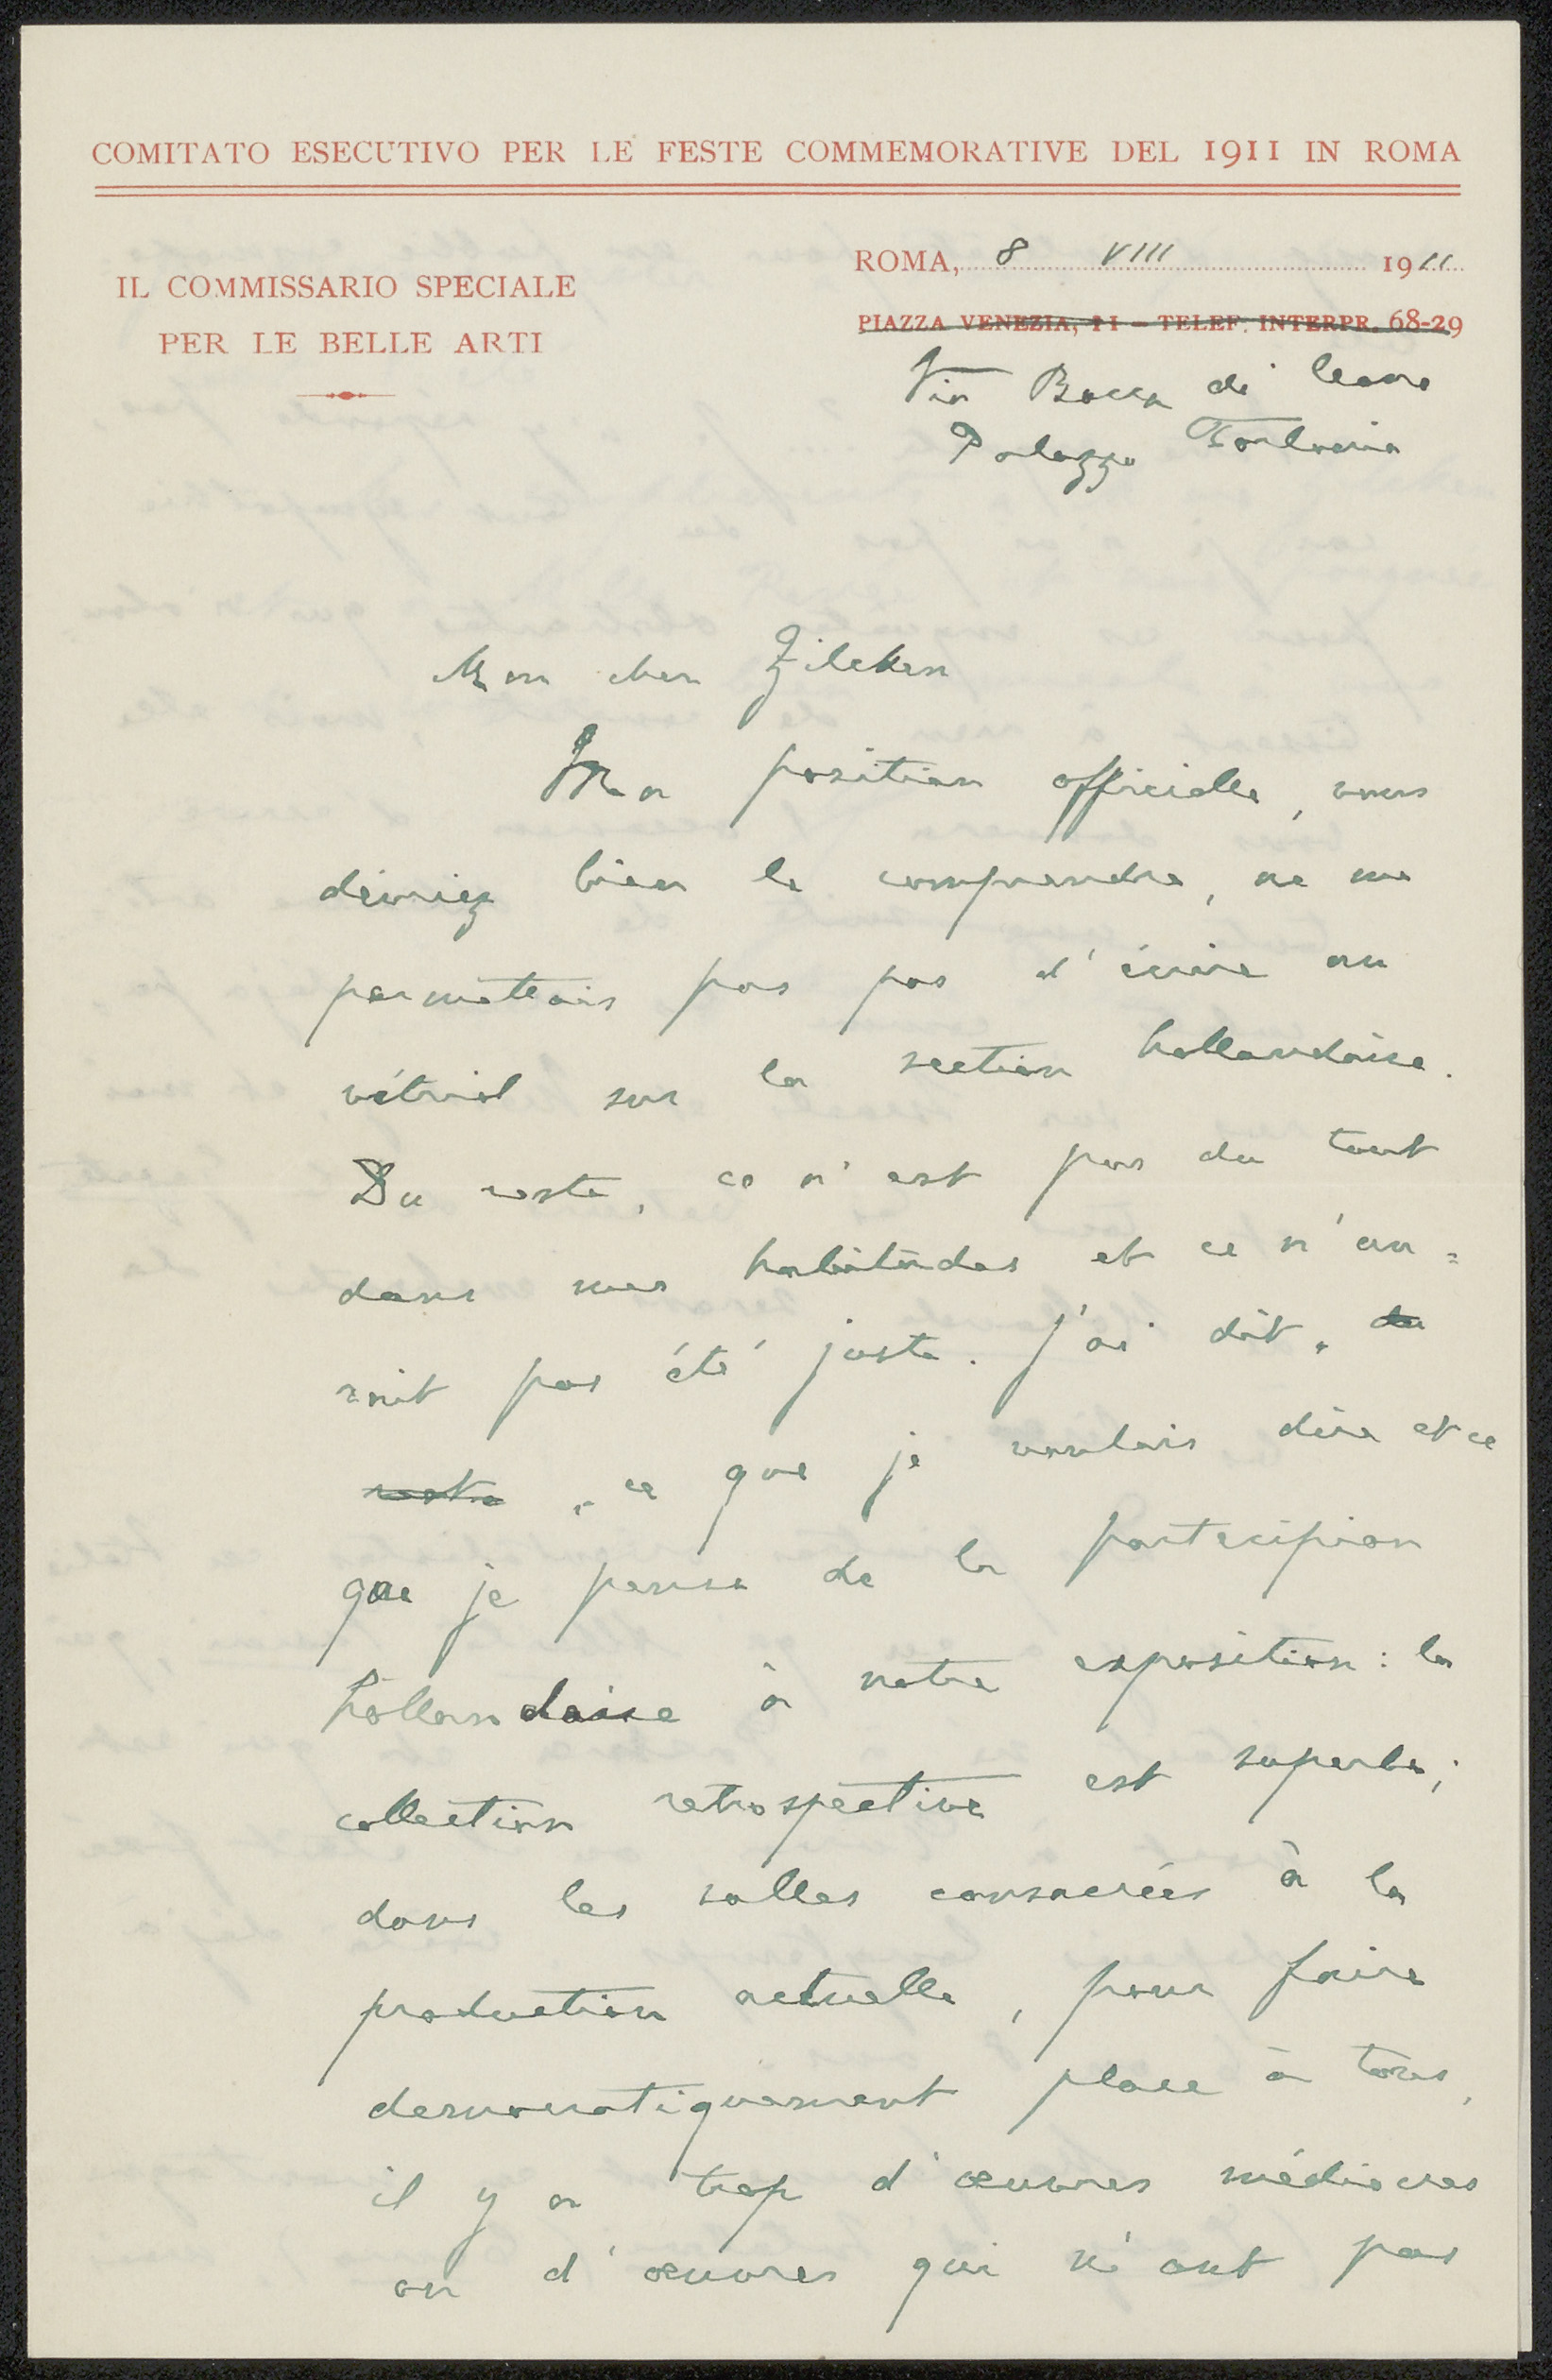 COMITATO ESECUTIVO PER LE FESTE COMMEMORATIVE DEL 1911 IN ROMA
IL COMMISSARIO SPECIALE
PER LE BELLE ARTI
ROMA, 8 VIII 1911
PIAZZA VENEZIA, 11 – TELEF. INTERPR. 68-29
Via Bocca di Leone
Palazzo Torlonia
Mon cher Zilcken
Ma position officielle, vous
dévriez bien le comprendre, ne me
permettais pas pas d'écrire au
vitriol sur la section hollandaise.
Du reste, ce n'est pas du tout
dans mes habitudes et ce n'au=
rait pas été juste. J'ai dit, du
reste, ce que je voulais dire et ce
que je pense de la partecipion
hollandaise à notre exposition: la
collection retrospective est superbe;
dans les salles consacrées à la
production actuelle, pour faire
democratiquement place à tous,
il y a trop d'œuvres médiocres
ou d'œuvres qui n'ont pas